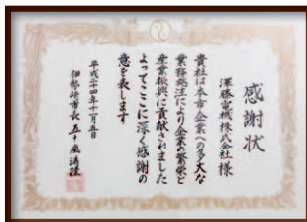 感謝状
澤藤電機株式会社様
貴社は本市企業への多大な
業務発注により企業の繁栄と
産業振興に貢献されました
よってここに深く感謝の
意を表します
平成二十四年十一月五日
伊勢崎市長 五十嵐清隆